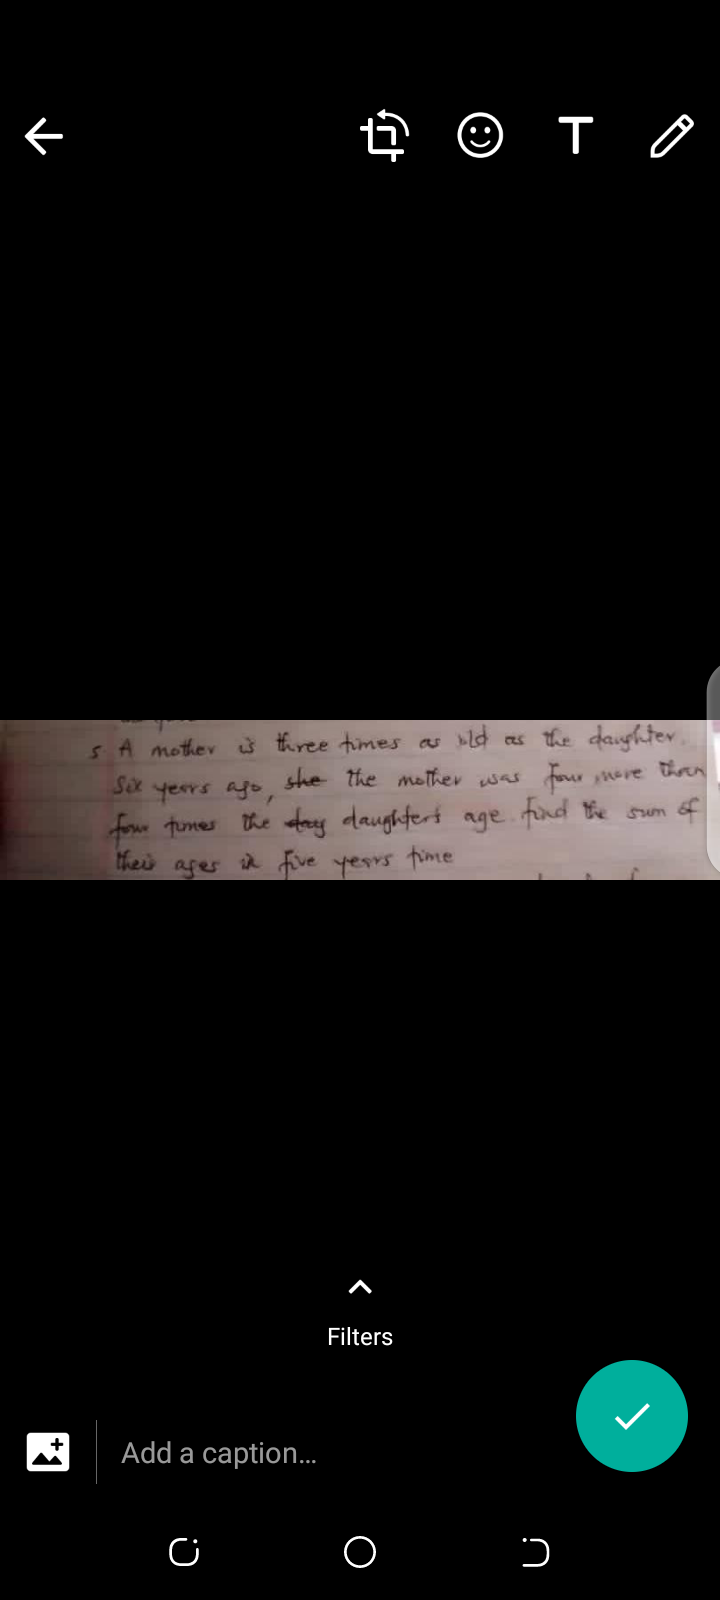 T
5 A mother is three times as old as the daughter.
Six years ago, she the mother was four more than
four times the day daughter's age. find the sum of
their ages in five years time
Filters
Add a caption...